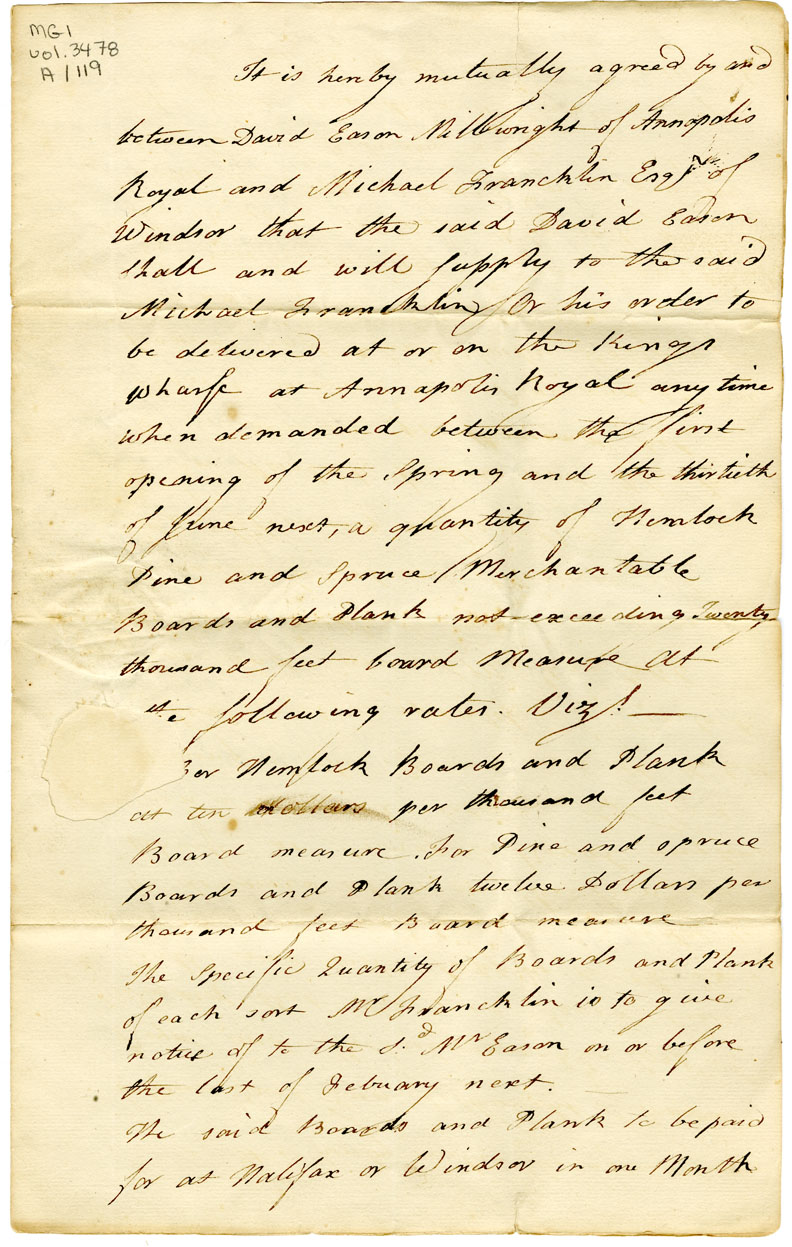 MG1
vol. 3478
A/119
It is hereby mutually agreed by and
between David Eason Millwright of Annapolis
Royal and Michael Francklin Esqr of
Windsor that the said David Eason
Shall and will Supply to the said
Michael Francklin Or his order to
be delivered at or on the Kings
Wharfe at Annapolis Royal any time
when demanded between the first
opening of the Spring and the thirtieth
of June next, a quantity of Hemlock
Pine and Spruce Merchantable
Boards and Plank not exceeding Twenty
thousand feet board Measure At
the following rates. Vizt
For Hemlock Boards and Plank
at ten Dollars per thousand feet
Board measure. For Pine and Spruce
Boards and Plank twelve Dollars per
thousand feet Board measure
The Specific Quantity of Boards and Plank
of each sort Mr Francklin is to give
notice of to the Sd Mr Eason on or before
the last of Febuary next.
The said Boards and Plank to be paid
for at Halifax or Windsor in one Month